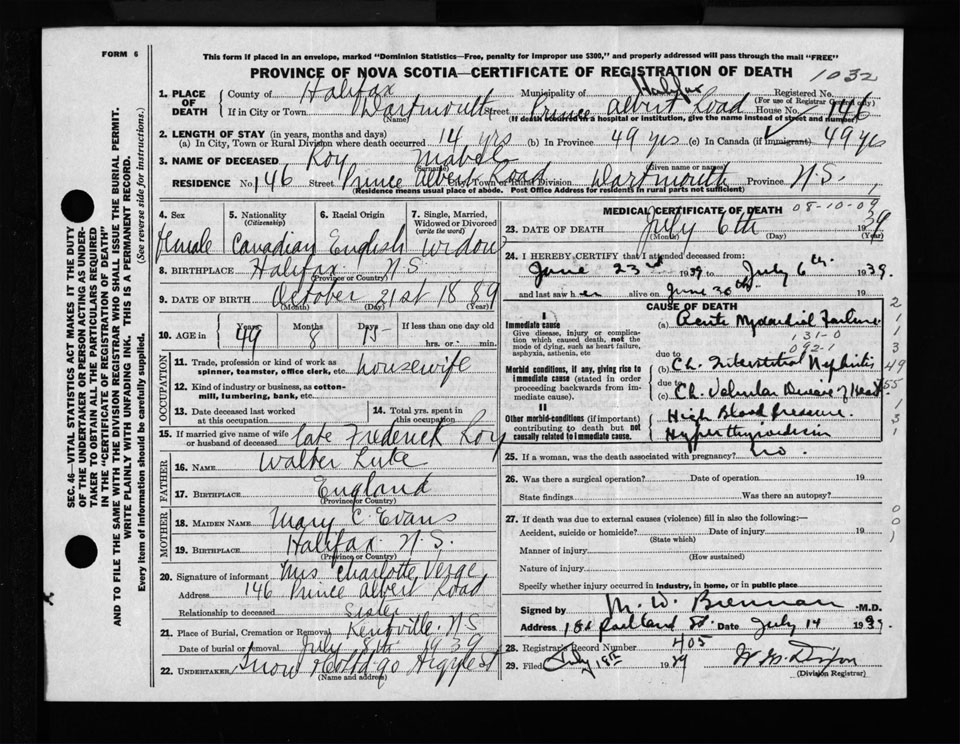 FORM 6
This form if placed in an envelope, marked "Dominion Statistics—Free, penalty for improper use $300," and properly addressed will pass through the mail "FREE"
PROVINCE OF NOVA SCOTIA—CERTIFICATE OF REGISTRATION OF DEATH
1032
1. PLACE OF DEATH
County of Halifax
Municipality of Halifax
Registered No.
(For use of Registrar General only)
If in City or Town Dartmouth Street Prince Albert Road House No. 146
(Name)
(If death occurred in a hospital or institution, give the name instead of street and number)
2. LENGTH OF STAY (in years, months and days)
(a) In City, Town or Rural Division where death occurred 14 yrs (b) In Province 49 yrs (c) In Canada (if immigrant) 49 yrs
3. NAME OF DECEASED Roy Mabel
(Surname) (Given name or names)
RESIDENCE No. 146 Street Prince Albert Road City, Town or Rural Division Dartmouth Province N.S.
(Residence means usual place of abode. Post Office Address for rural parts not sufficient)
4. Sex Female
5. Nationality (Citizenship) Canadian
6. Racial Origin English
7. Single, Married, Widowed or Divorced (write the word) Widow
8. BIRTHPLACE Halifax N.S.
(Province or Country)
9. DATE OF BIRTH October 21st 1889
(Month) (Day) (Year)
10. AGE in Years 49 Months 8 Days 15 If less than one day old
hrs. or min.
OCCUPATION
11. Trade, profession or kind of work as spinner, teamster, office clerk, etc. housewife
12. Kind of industry or business, as cotton-mill, lumbering, bank, etc.
13. Date deceased last worked at this occupation
14. Total yrs. spent in this occupation
15. If married give name of wife or husband of deceased late Frederick Roy
FATHER
16. NAME Walter Luke
17. BIRTHPLACE England
(Province or Country)
MOTHER
18. MAIDEN NAME Mary C. Evans
19. BIRTHPLACE Halifax N.S.
(Province or Country)
20. Signature of informant Mrs Charlotte Verge
Address 146 Prince Albert Road
Relationship to deceased Sister
21. Place of Burial, Cremation or Removal Kentville N.S
Date of burial or removal July 8th 1939
22. UNDERTAKER Snow
(Name and address)
MEDICAL CERTIFICATE OF DEATH
08-10-09
23. DATE OF DEATH July 6th 1939
(Month) (Day) (Year)
24. I HEREBY CERTIFY that I attended deceased from:
June 23rd 1939 to July 6th 1939.
and last saw her alive on June 30th
CAUSE OF DEATH
I
Immediate cause
Give disease, injury or complication which caused death, not the mode of dying, such as heart failure, asphyxia, asthenia, etc
(a) Acute Myocardial Failure
131-0
092-1
due to
Morbid conditions, if any, giving rise to immediate cause (stated in order proceeding backwards from immediate cause).
(b) Ch. Interstitial Nephritis
due to
(c) Ch. Valvular Disease of Heart
II
Other morbid conditions (if important) contributing to death but not causally related to immediate cause.
High Blood Pressure.
Hyperthyroidism
25. If a woman, was the death associated with pregnancy? no.
26. Was there a surgical operation? Date of operation 19
State findings Was there an autopsy?
27. If death was due to external causes (violence) fill in also the following:—
Accident, suicide or homicide? Date of injury 19
(State which)
Manner of injury
(How sustained)
Nature of injury
Specify whether injury occurred in industry, in home, or in public place
Signed by M. W. Brennan M.D.
Address Portland St. Date July 14 1939.
28. Registrar's Record Number 405
29. Filed July 19th 1939
(Division Registrar)
SEC. 46—VITAL STATISTICS ACT MAKES IT THE DUTY
OF THE UNDERTAKER OR PERSON ACTING AS UNDERTAKER TO OBTAIN ALL THE PARTICULARS REQUIRED
IN THE "CERTIFICATE OF REGISTRATION OF DEATH"
AND TO FILE THE SAME WITH THE DIVISION REGISTRAR WHO SHALL ISSUE THE BURIAL PERMIT.
WRITE PLAINLY WITH UNFADING INK. THIS IS A PERMANENT RECORD.
Every item of information should be carefully supplied. (See reverse side for instructions.)